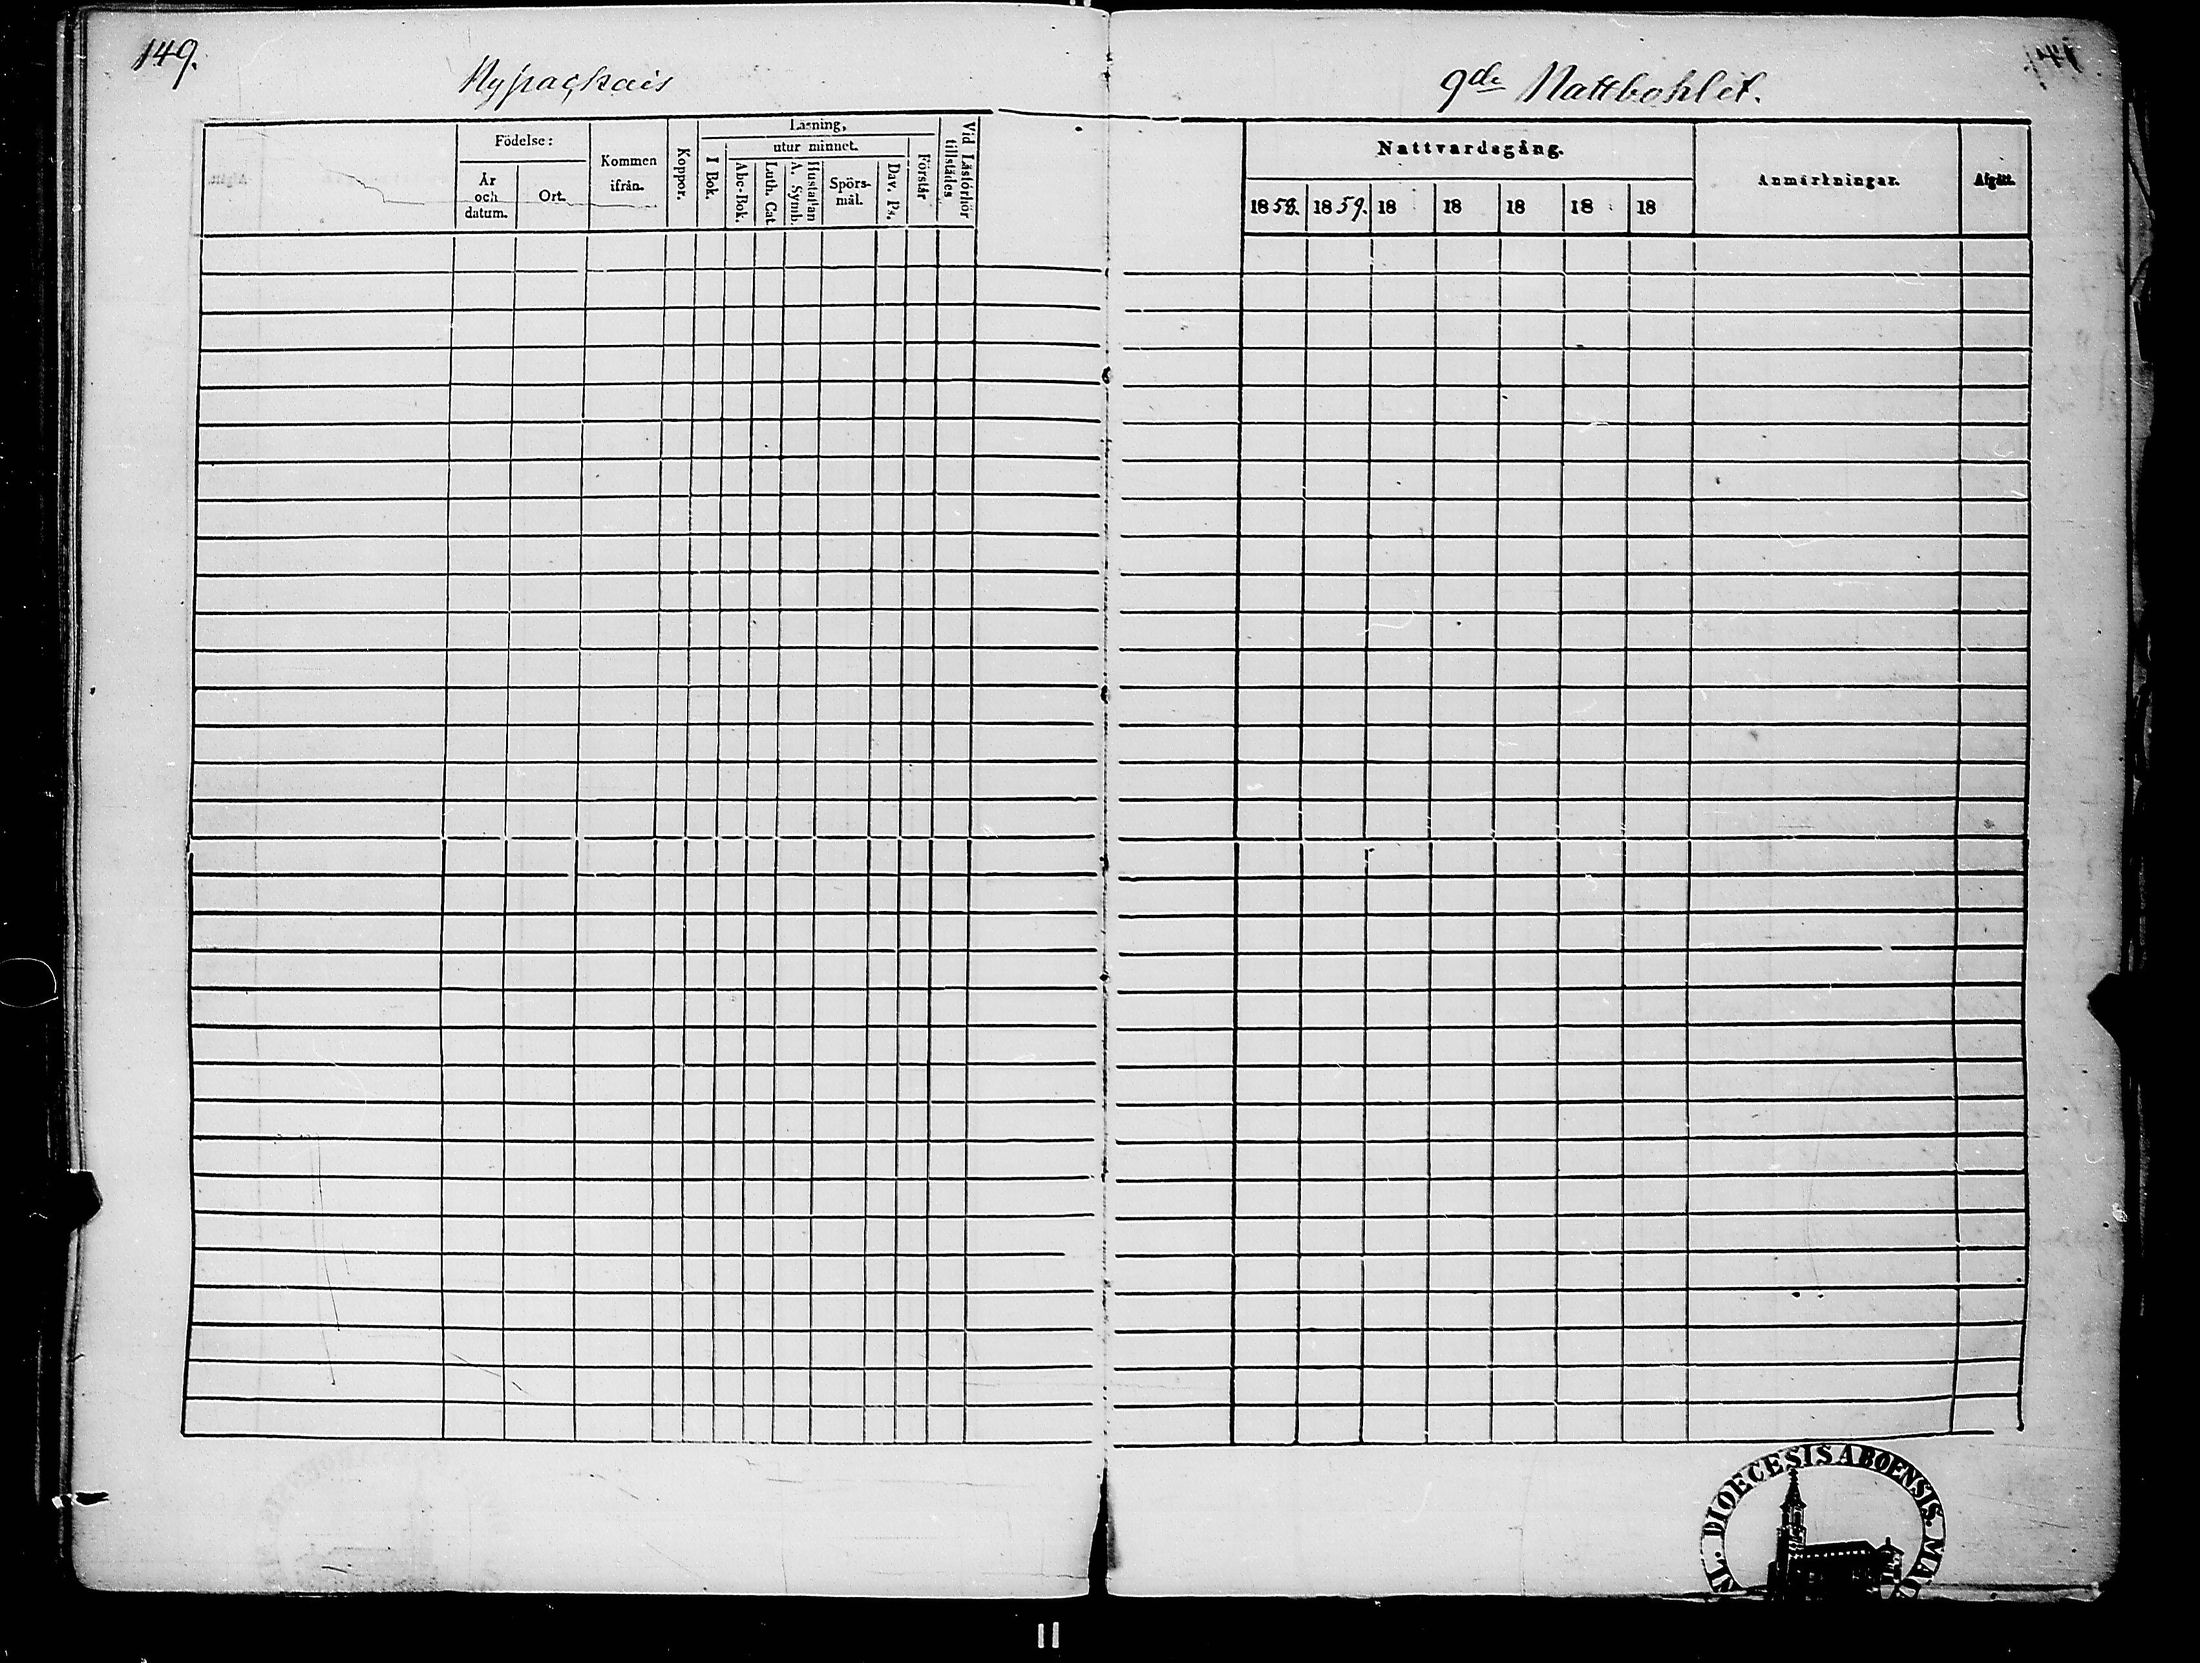 149.
9de Nattbohlet.
Födelse:
År
och
datum.
Ort.
Kommen
ifrån.
Koppor.
Läsning,
I Bok.
utur minnet.
Abc-Bok.
Luth. Cat.
Hustaflan
A. Symb.
Spörs-
mål.
Dav. Ps.
Förstår
Vid Läsförhör
tillstädes
Nattvardsgång.
1858. 1859. 18 18 18 18 18
Anmärkningar.
Afgått.
DIOECESIS ABOENSIS.
II